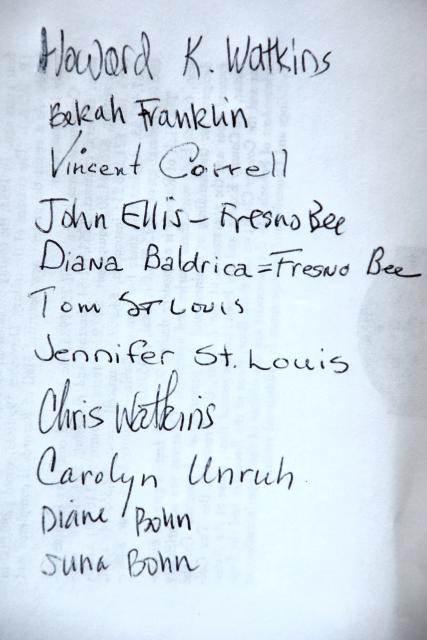 Howard K. Watkins
Bekah Franklin
Vincent Correll
John Ellis - Fresno Bee
Diana Baldrica = Fresno Bee
Tom St Louis
Jennifer St. Louis
Chris Watkins
Carolyn Unruh
Diane Bohn
Suna Bohn